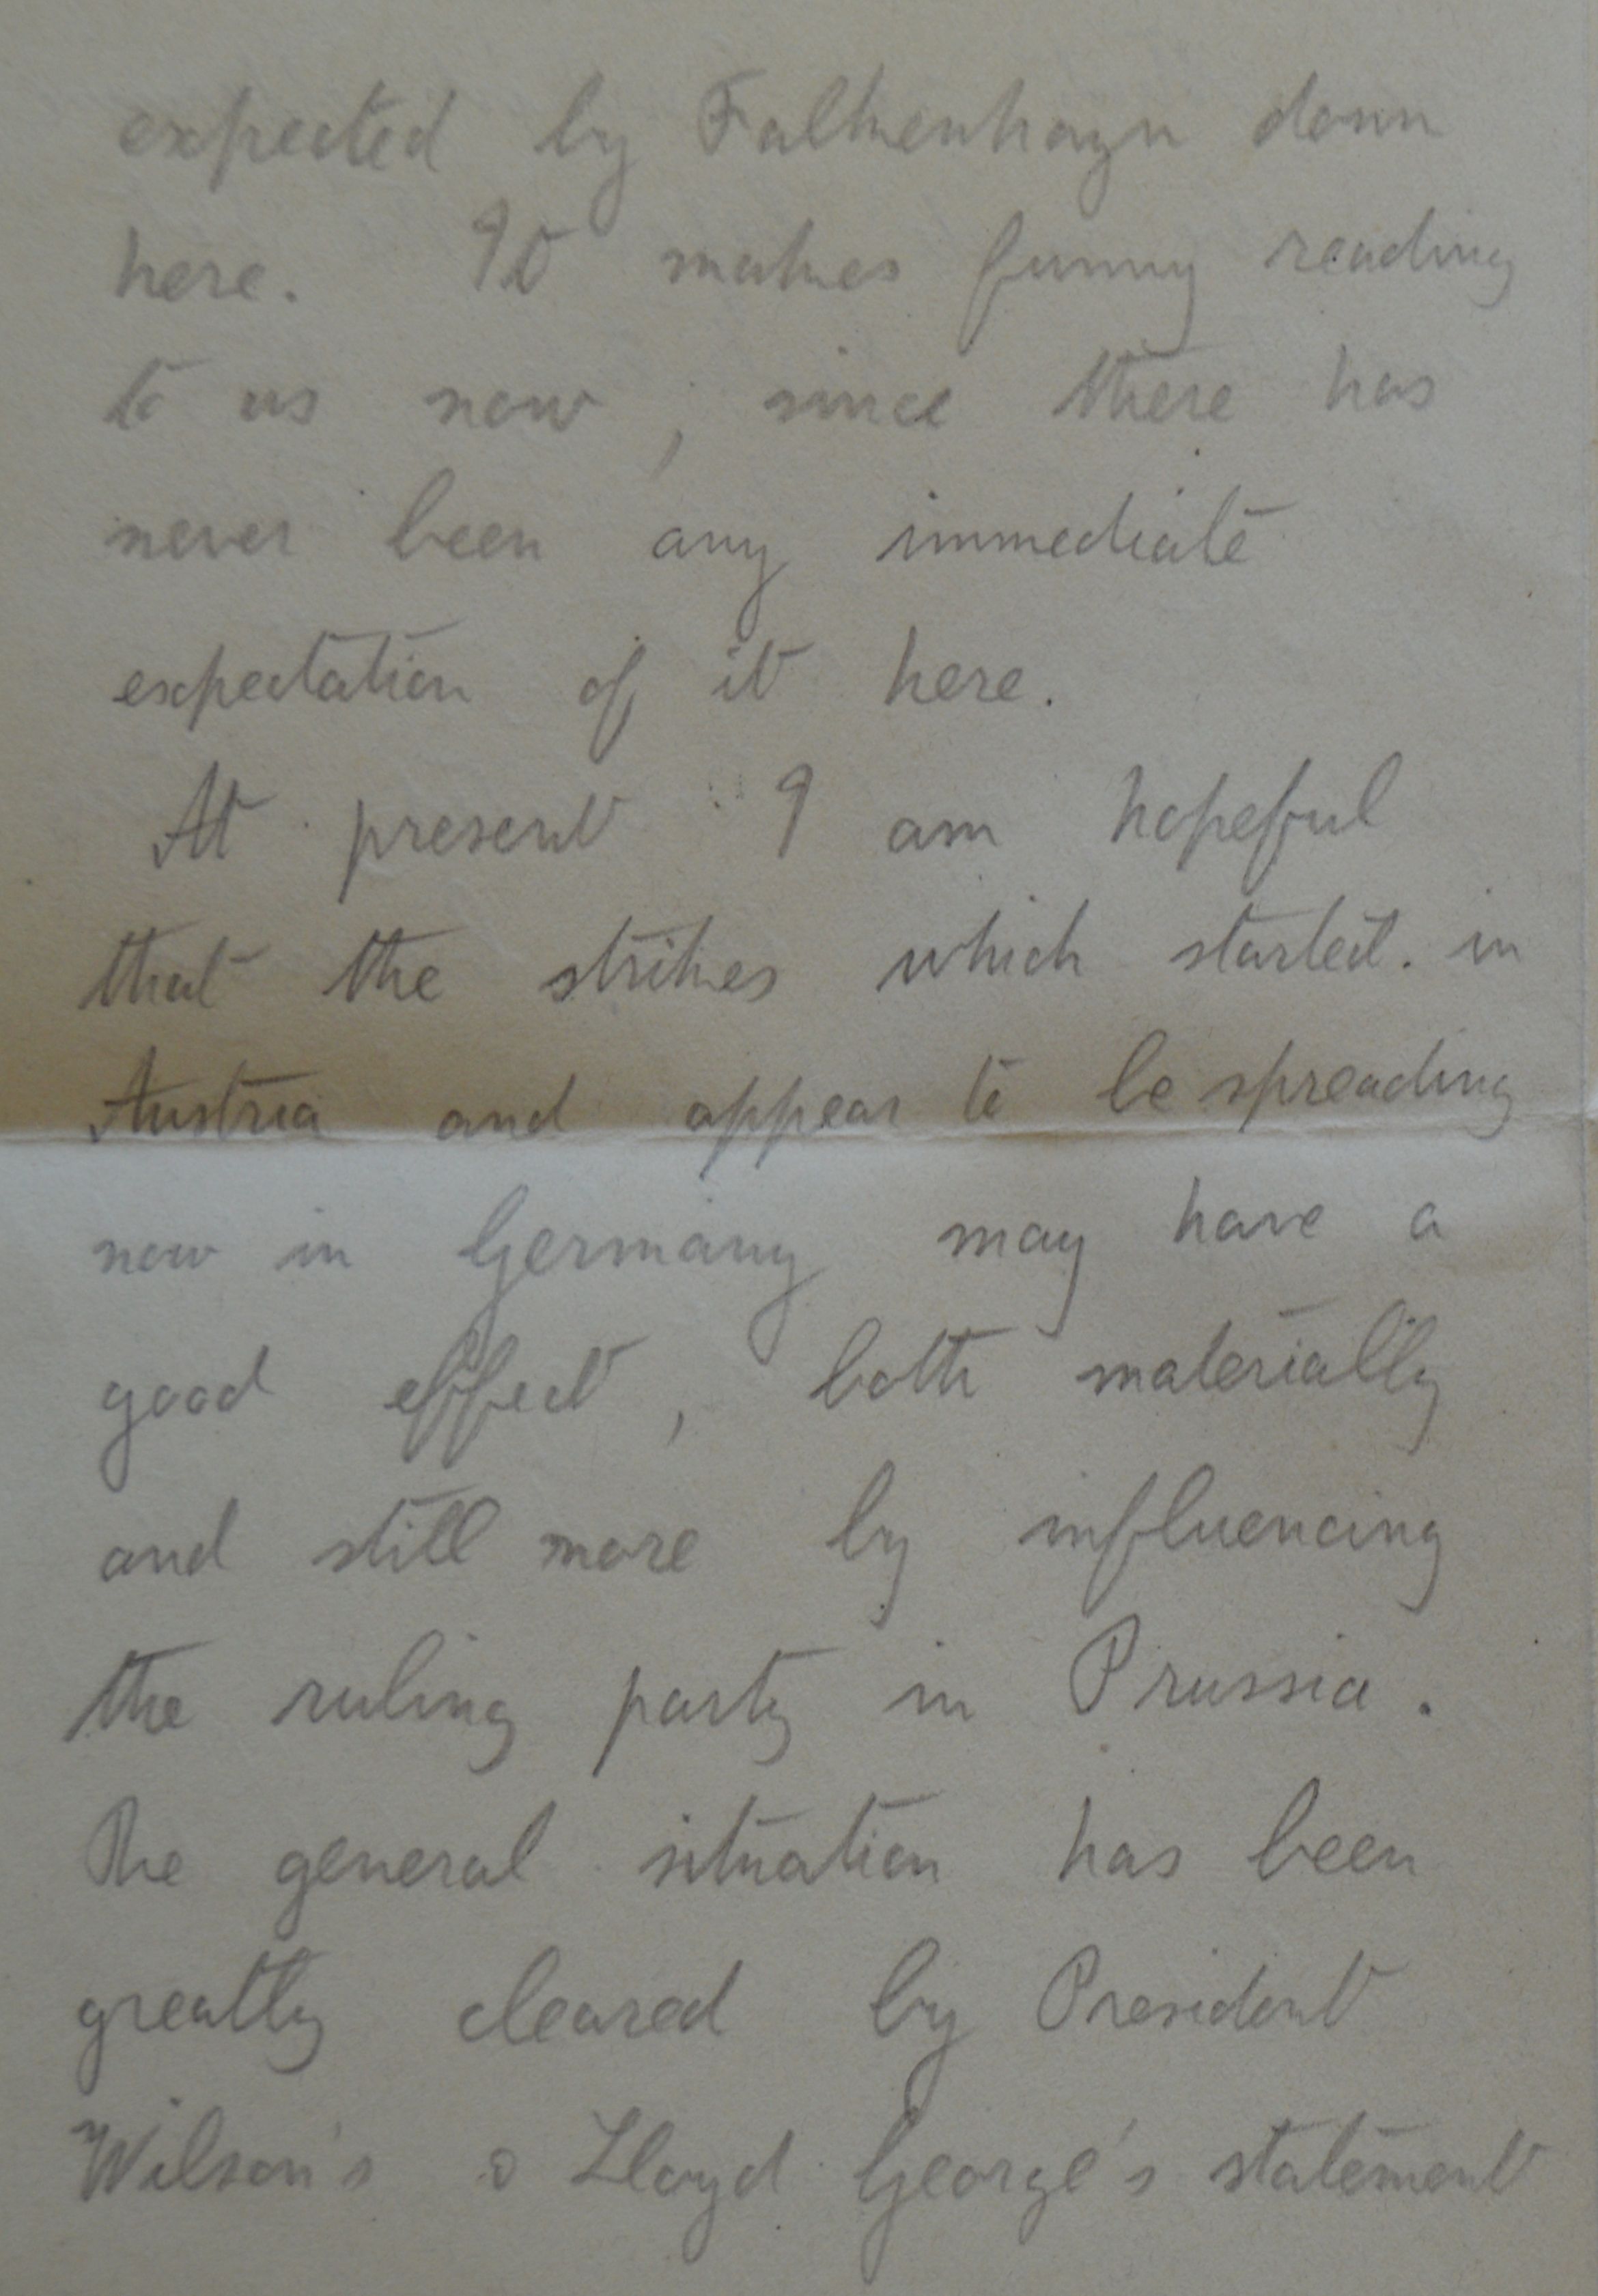 expected by Falkenhayn down
here. It makes funny reading
to us now, since there has
never been any immediate
expectation of it here.
At present I am hopeful
that the strikes which started in
Austria and appear to be spreading
now in Germany may have a
good effect, both materially
and still more by influencing
the ruling party in Prussia.
The general situation has been
greatly cleared by President
Wilson's & Lloyd George's statement